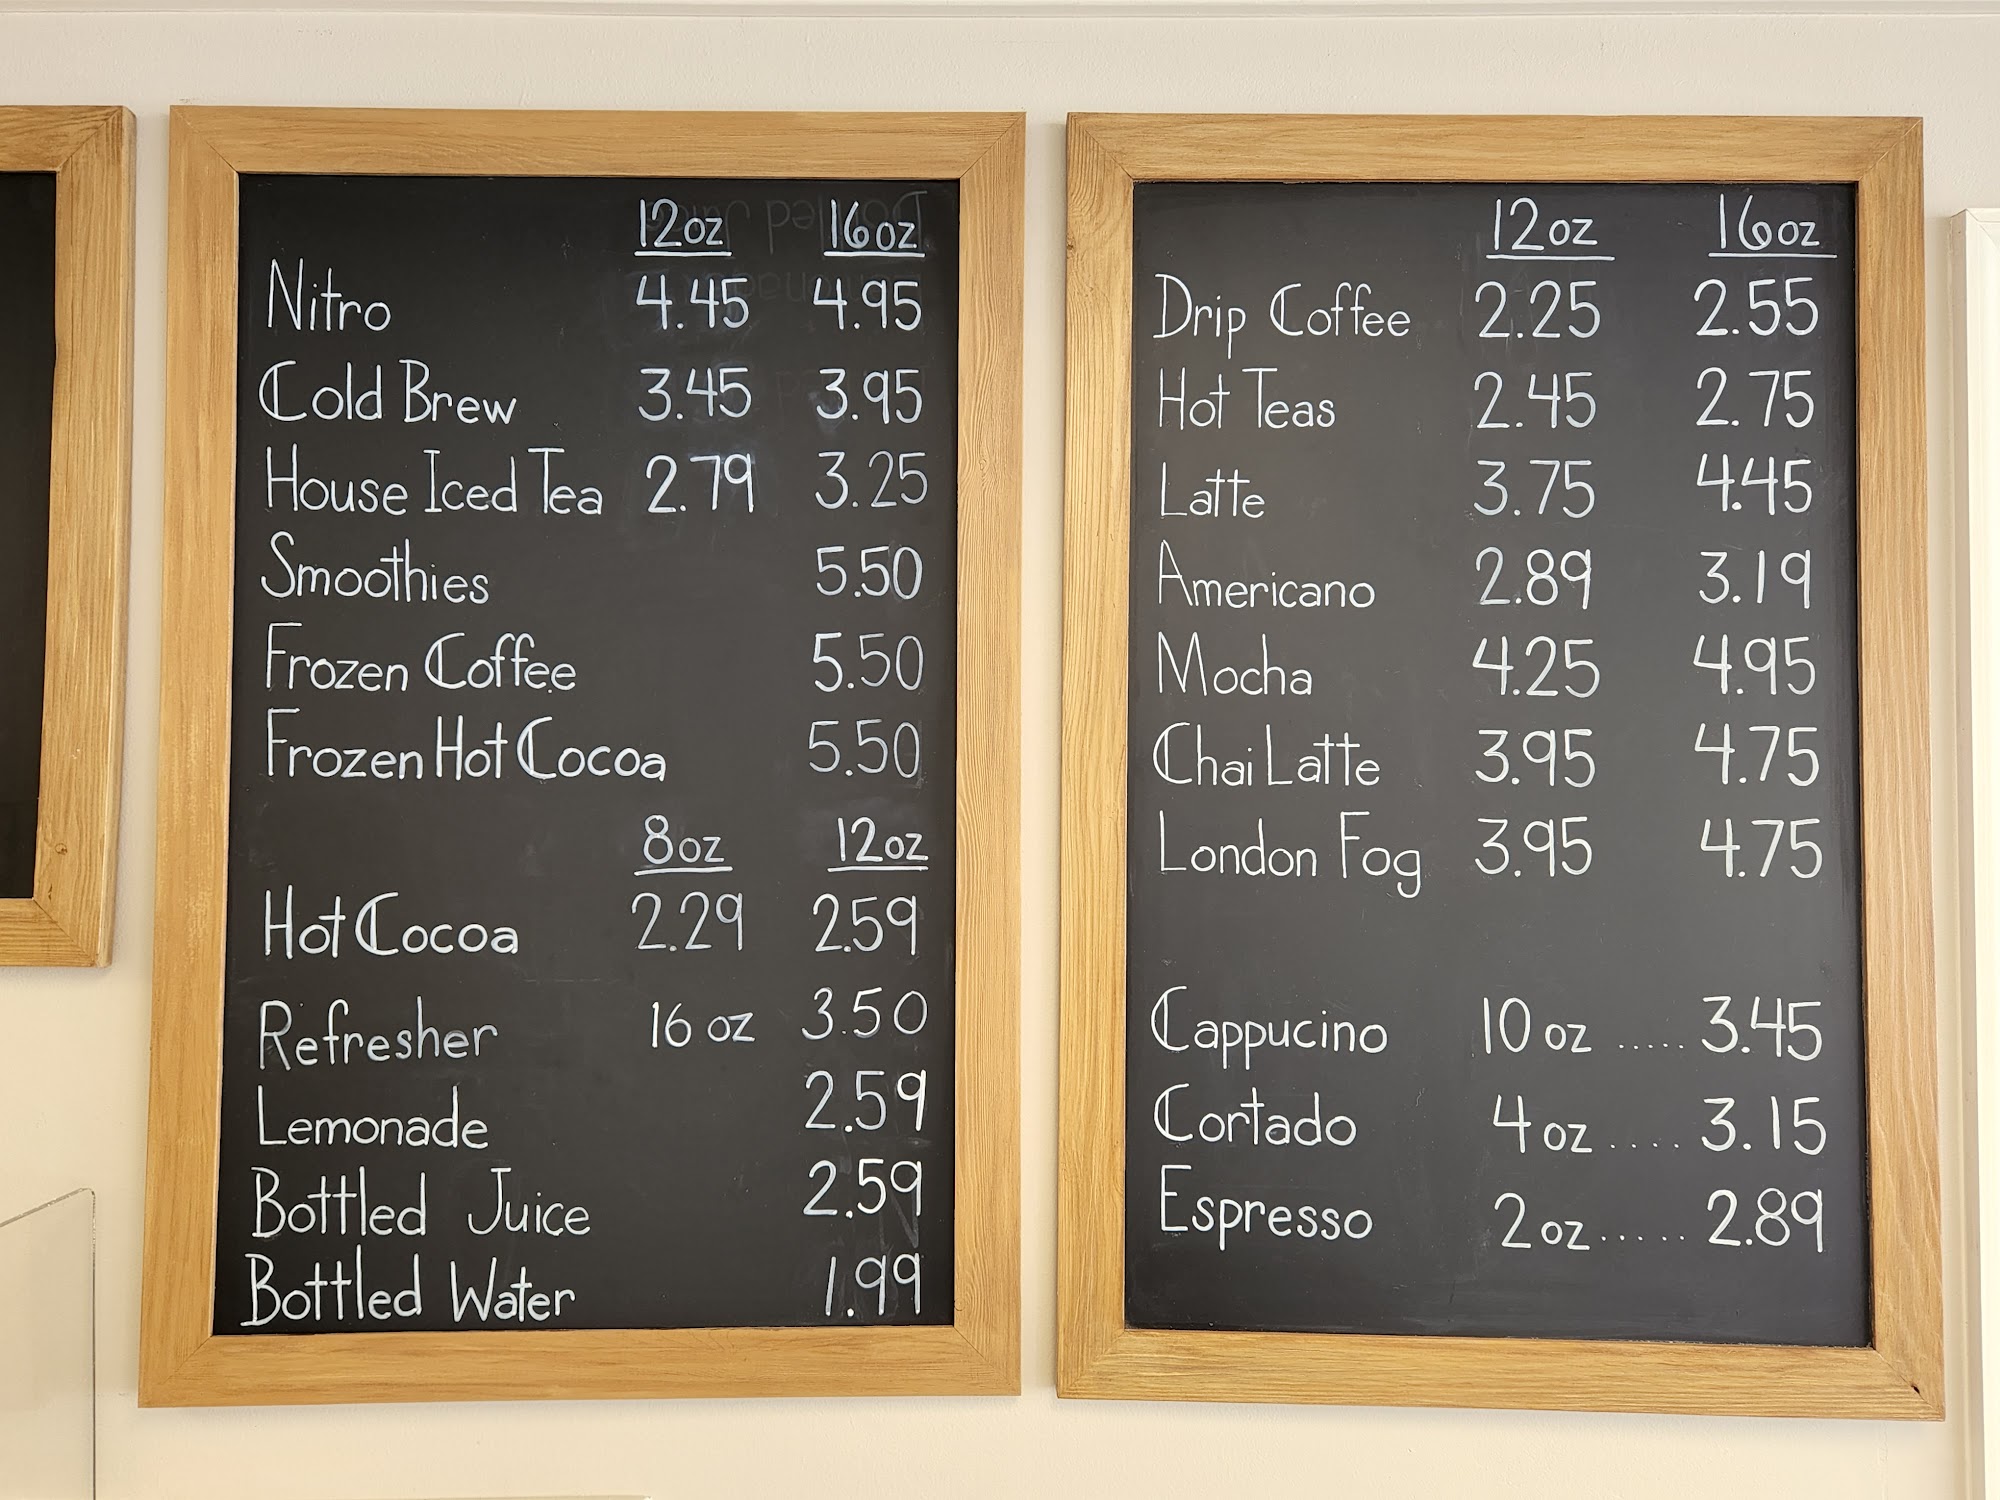 12oz 16oz
Nitro 4.45 4.95
Cold Brew 3.45 3.95
House Iced Tea 2.79 3.25
Smoothies 5.50
Frozen Coffee 5.50
Frozen Hot Cocoa 5.50
8oz 12oz
Hot Cocoa 2.29 2.59
Refresher 16 oz 3.50
Lemonade 2.59
Bottled Juice 2.59
Bottled Water 1.99
12oz 16oz
Drip Coffee 2.25 2.55
Hot Teas 2.45 2.75
Latte 3.75 4.45
Americano 2.89 3.19
Mocha 4.25 4.95
Chai Latte 3.95 4.75
London Fog 3.95 4.75
Cappucino 10 oz ..... 3.45
Cortado 4 oz ..... 3.15
Espresso 2 oz ..... 2.89